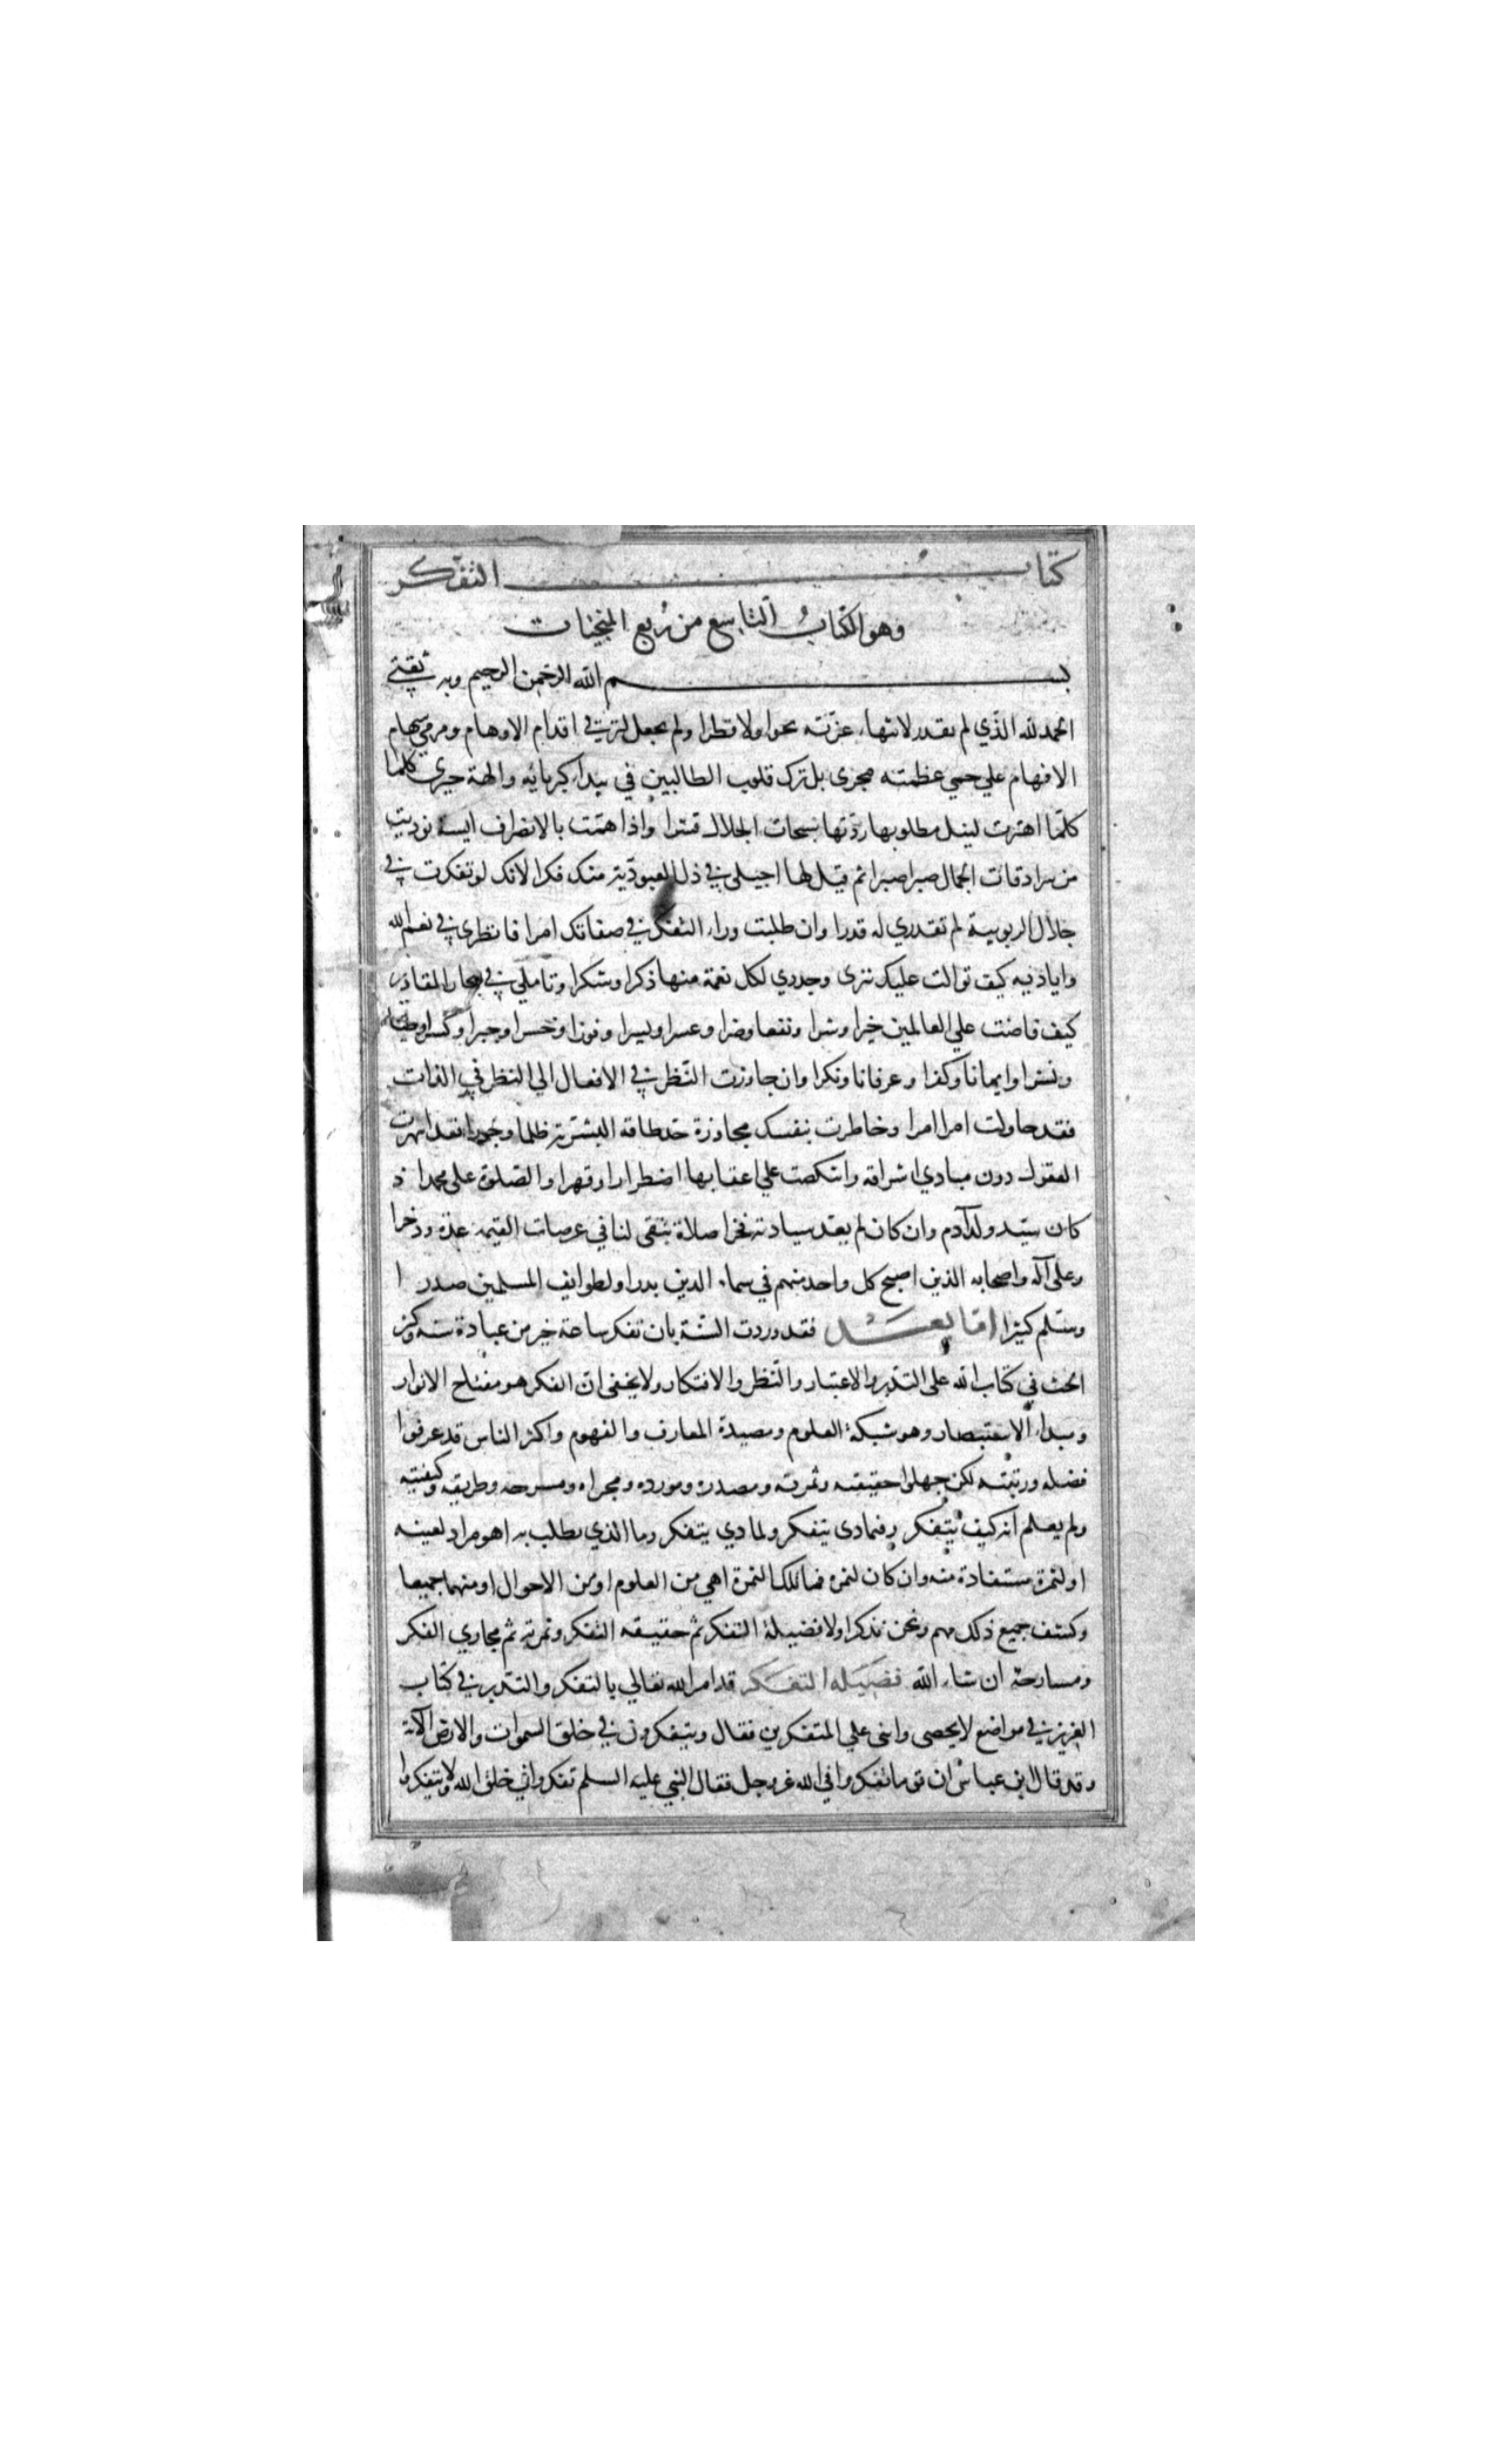 كتاب التفكر
وهو الكتاب التاسع من ربع المنجيات
بسم الله الرحمن الرحيم وبه ثقتي
الحمد لله الذي لم يقدر لانتهاء عزته نحوا ولا قطرا ولم يجعل لترقي اقدام الاوهام ومرمى سهام
الافهام علي حمي عظمته مجرى بل ترك قلوب الطالبين في بيداء كبريائه والهة حيرى كلما
كلما اهتزت لنيل مطلوبها ردتها سبحات الجلال قسرا واذا همت بالانصراف ايسة نوديت
من سرادقات الجمال صبرا صبرا ثم قيل لها اجيلى في ذل العبودية منك فكرا لانك لو تفكرت في
جلال الربوبية لم تقدري له قدرا وان طلبت وراء التفكر في صفاتك امرا فانظرى في نعم الله
واياديه كيف توالت عليك تترى وجددي لكل نعمة منها ذكرا وشكرا وتاملي في بحار المقادير
كيف فاضت علي العالمين خيرا وشرا ونفعا وضرا وعسرا ويسرا وفوزا وخسرا وجبرا وكسرا وطيا
ونشرا وايمانا وكفرا وعرفانا ونكرا وان جاوزت النظر في الافعال الي النظر في الذات
فقد حاولت امرا امرا وخاطرت بنفسك مجاوزة حد طاقة البشرية ظلما وجورا فقد انبهرت
العقول دون مبادي اشراقه وانتكصت علي اعقابها اضطرارا وقهرا والصلوة على محمد اذ
كان سيد ولد آدم وان كان لم يعد سيادته فخرا صلاة تبقى لنا في عرصات القيمة عدة وذخرا
وعلى آله واصحابه الذين اصبح كل واحد منهم في سماء الدين بدرا ولطوايف المسلمين صدرا
وسلم كثيرا اما بعد فقد وردت السنة بان تفكر ساعة خير من عبادة سنة وكثر
الحث في كتاب الله على التدبر والاعتبار والنظر والافتكار ولا يخفى ان الفكر هو مفتاح الانوار
ومبداء الاستبصار وهو شبكة العلوم ومصيدة المعارف والفهوم واكثر الناس قد عرفوا
فضله ورتبته لكن جهلوا حقيقته وثمرته ومصدره ومورده ومجراه ومسرحه وطريقه وكيفيته
ولم يعلم انه كيف يتفكر وفيماذى يتفكر ولماذي يتفكر وما الذي يطلب به اهو مراد لعينه
او لثمرة مستفادة منه وان كان لثمره فما تلك الثمرة اهي من العلوم او من الاحوال او منهما جميعا
وكشف جميع ذلك مهم ونحن نذكر اولا فضيلة التفكر ثم حقيقه التفكر وثمرته ثم مجاري الفكر
ومسارحه ان شاء الله فضيله التفكر قد امر الله تعالي بالتفكر والتدبر في كتاب
العزيز في مواضع لا يحصى واثنى علي المتفكرين فقال ويتفكرون في خلق السموات والارض الآية
وقد قال ابن عباس ان قوما تفكروا في الله عز وجل فقال النبي عليه السلم تفكروا في خلق الله ولا تتفكروا